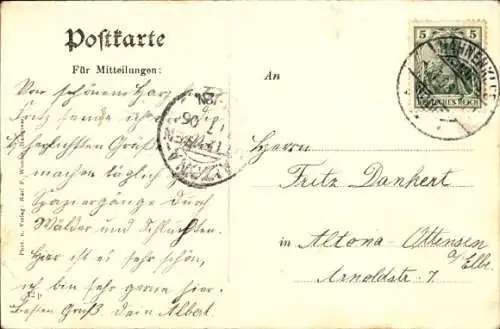 Postkarte
Für Mitteilungen:
An
5 5
DEUTSCHES REICH
Vom schönen Harz
Fritz sende ich Dir die
herzlichsten Grüße
machen täglich
Spaziergänge durch
Wälder und Schluchten.
Hier ist es sehr schön,
ich bin sehr gerne hier.
Besten Gruß Dein Albert.
Herrn
Fritz Dankert
in Altona-Ottensen
a/Elbe
Arnoldstr. 7